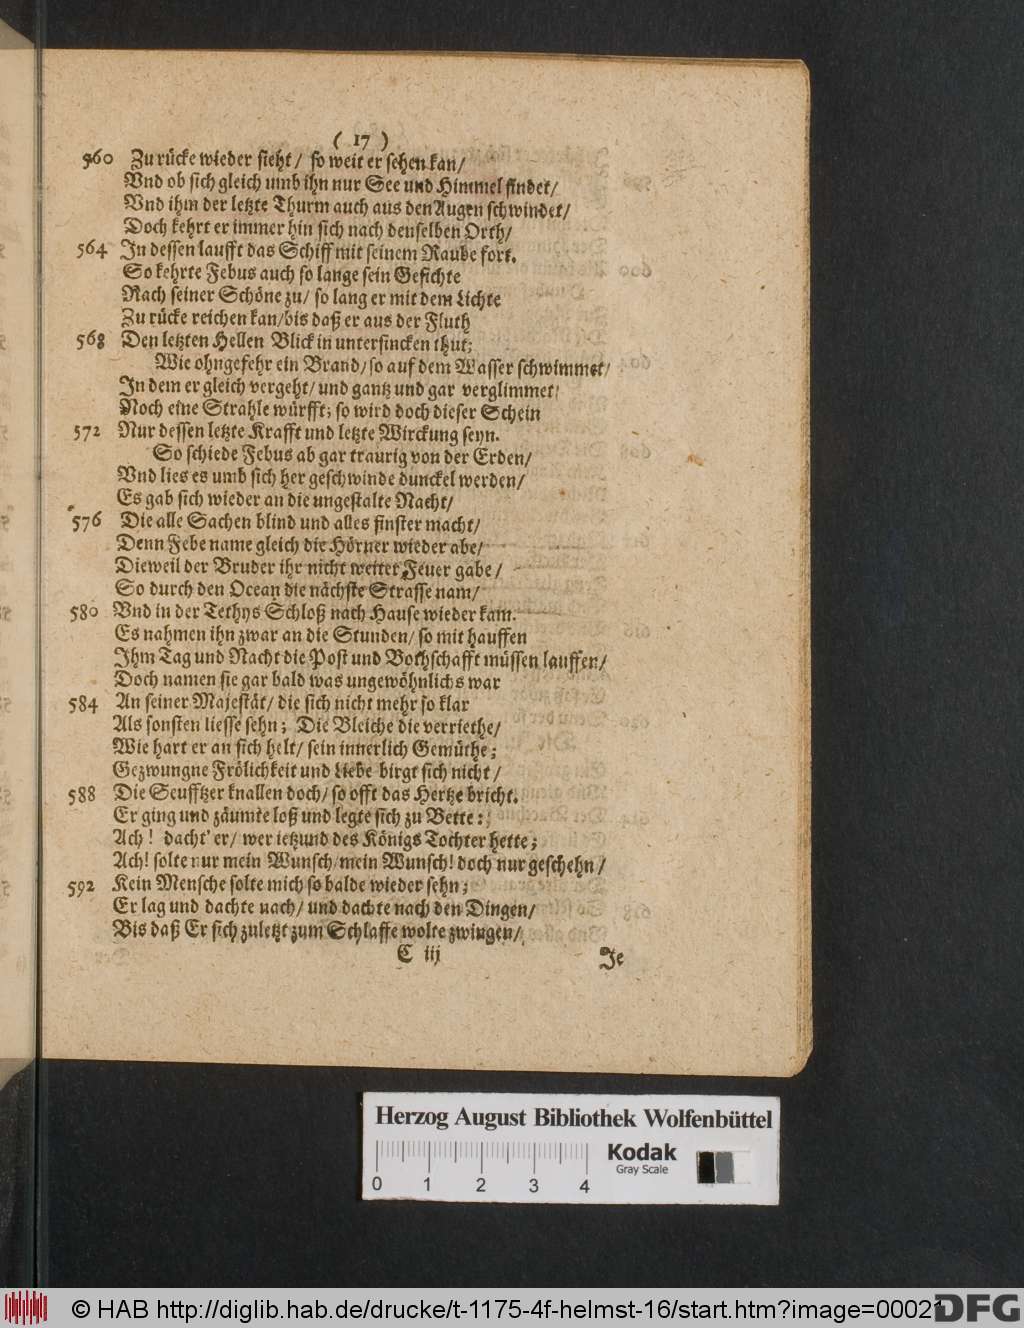 ( 17 )
560 Zu rücke wieder sieht/ so weit er sehen kan/
Vnd ob sich gleich umb ihn nur See und Himmel findet/
Vnd ihm der letzte Thurm auch aus den Augen schwindet/
Doch kehrt er immer hin sich nach denselben Orth/
564 In dessen laufft das Schiff mit seinem Raube fort.
So kehrte Febus auch so lange sein Gesichte
Nach seiner Schöne zu/ so lang er mit dem Lichte
Zu rücke reichen kan/bis daß er aus der Fluth
568 Den letzten Hellen Blick in untersincken thut;
Wie ohngefehr ein Brand/so auf dem Wasser schwimmet/
In dem er gleich vergeht/ und gantz und gar verglimmet/
Noch eine Strahle würfft; so wird doch dieser Schein
572 Nur dessen letzte Krafft und letzte Wirckung seyn.
So schiede Febus ab gar traurig von der Erden/
Vnd lies es umb sich her geschwinde dunckel werden/
Es gab sich wieder an die ungestalte Nacht/
576 Die alle Sachen blind und alles finster macht/
Denn Febe name gleich die Hörner wieder abe/
Dieweil der Bruder ihr nicht weiter Feuer gabe/
So durch den Ocean die nächste Strasse nam/
580 Vnd in der Tethys Schloß nach Hause wieder kam.
Es nahmen ihn zwar an die Stunden/ so mit hauffen
Ihm Tag und Nacht die Post und Bothschafft müssen lauffen/
Doch namen sie gar bald was ungewöhnlichs war
584 An seiner Majestät/ die sich nicht mehr so klar
Als sonsten liesse sehn; Die Bleiche die verriethe/
Wie hart er an sich helt/ sein innerlich Gemüthe;
Gezwungne Frölichkeit und Liebe birgt sich nicht/
588 Die Seufftzer knallen doch/ so offt das Hertze bricht.
Er ging und zäumte loß und legte sich zu Bette:
Ach! dacht' er/ wer ietzund des Königs Tochter hette;
Ach! solte nur mein Wunsch/mein Wunsch! doch nur geschehn/
592 Kein Mensche solte mich so balde wieder sehn;
Er lag und dachte nach/ und dachte nach den Dingen/
Bis daß Er sich zuletzt zum Schlaffe wolte zwingen/
C iij Je
Herzog August Bibliothek Wolfenbüttel
Kodak
Gray Scale
0 1 2 3 4
© HAB http://diglib.hab.de/drucke/t-1175-4f-helmst-16/start.htm?image=00021
DFG